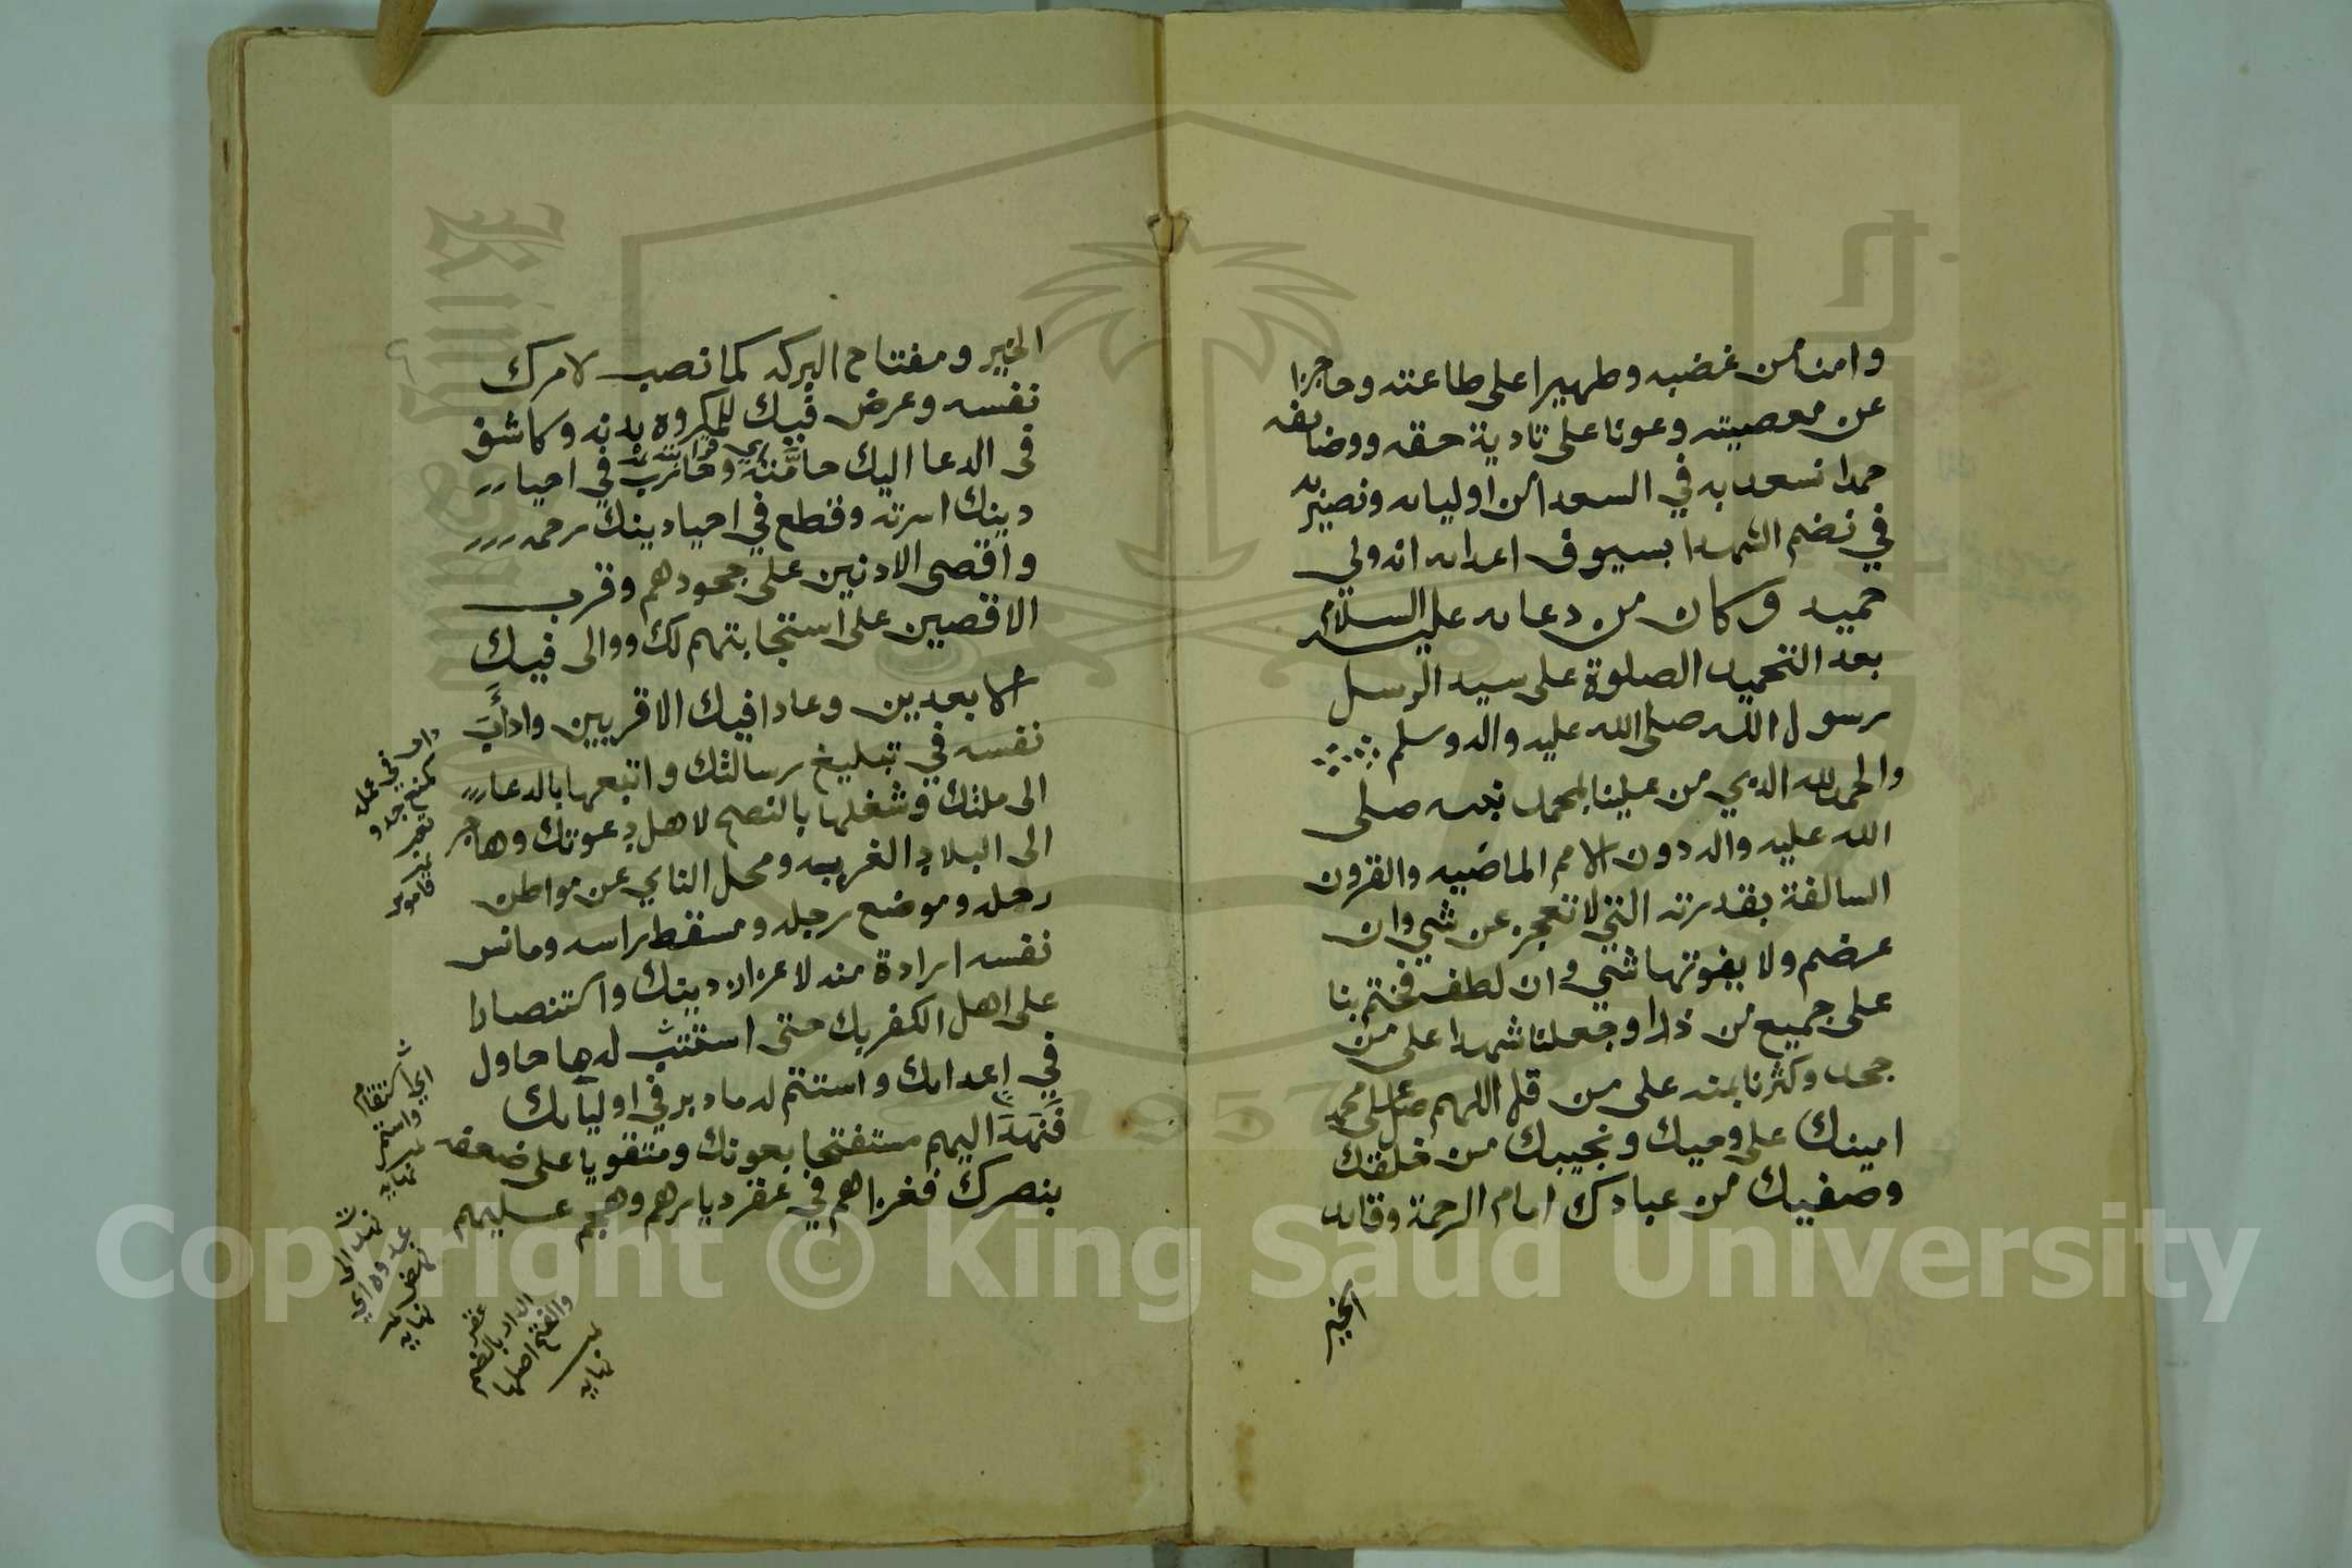 وامنا من غضبه وظهيرا على طاعته وحاجزا
عن معصيته وعونا على تادية حقه ووضايفه
حمدا نسعد به في السعدا من اوليائه ونصير به
في نضم الشهدا بسيوف اعدائه انه ولي
حميد وكان من دعائه عليه السلام
بعد التحميد الصلوة على سيد الرسل
رسول الله صلى الله عليه واله وسلم
والحمد لله الذي من علينا بمحمد نبيه صلى
الله عليه واله دون الامم الماضيه والقرون
السالفة بقدرته التي لا تعجز عن شي وان
عضم ولا يفوتها شي وان لطف فختم بنا
على جميع من ذرا وجعلنا شهدا على من
جحد وكثرنا بمنه على من قل اللهم صل على محمد
امينك على وحيك ونجيبك من خلقك
وصفيك من عبادك امام الرحمة وقائد
الخير
الخير ومفتاح البركه كما نصب لامرك
نفسه وعرض فيك للمكروه بدنه وكاشف
في الدعا اليك حامته وحارب في احيا
دينك اسرته وقطع في احيا دينك رحمه
واقصى الادنين على جحودهم وقرب
الاقصين على استجابتهم لك ووالى فيك
الابعدين وعادا فيك الاقربين وادأب
نفسه في تبليغ رسالتك واتبعها بالدعا
الى ملتك وشغلها بالنصح لاهل دعوتك وهاجر
الى البلاد الغربه ومحل الناي عن مواطن
رحله وموضع رجله ومسقط راسه ومانس
نفسه ارادة منه لاعزاز دينك واستنصارا
على اهل الكفر بك حتى استتب له ما حاول
في اعدائك واستتم له ما دبر في اوليائك
فنهد اليهم مستفتحا بعونك ومتقويا على ضعفه
بنصرك فغزاهم في عقر ديارهم وهجم عليهم
داب في عمله
كمنع جد و
تعب
قاموس
اي استقام
واستمر
نهايه
نهد الى
عدوه اي
نهض
نهايه
عقر
الدار بالضم
والفتح اصلها
نهايه
Copyright © King Saud University
1957